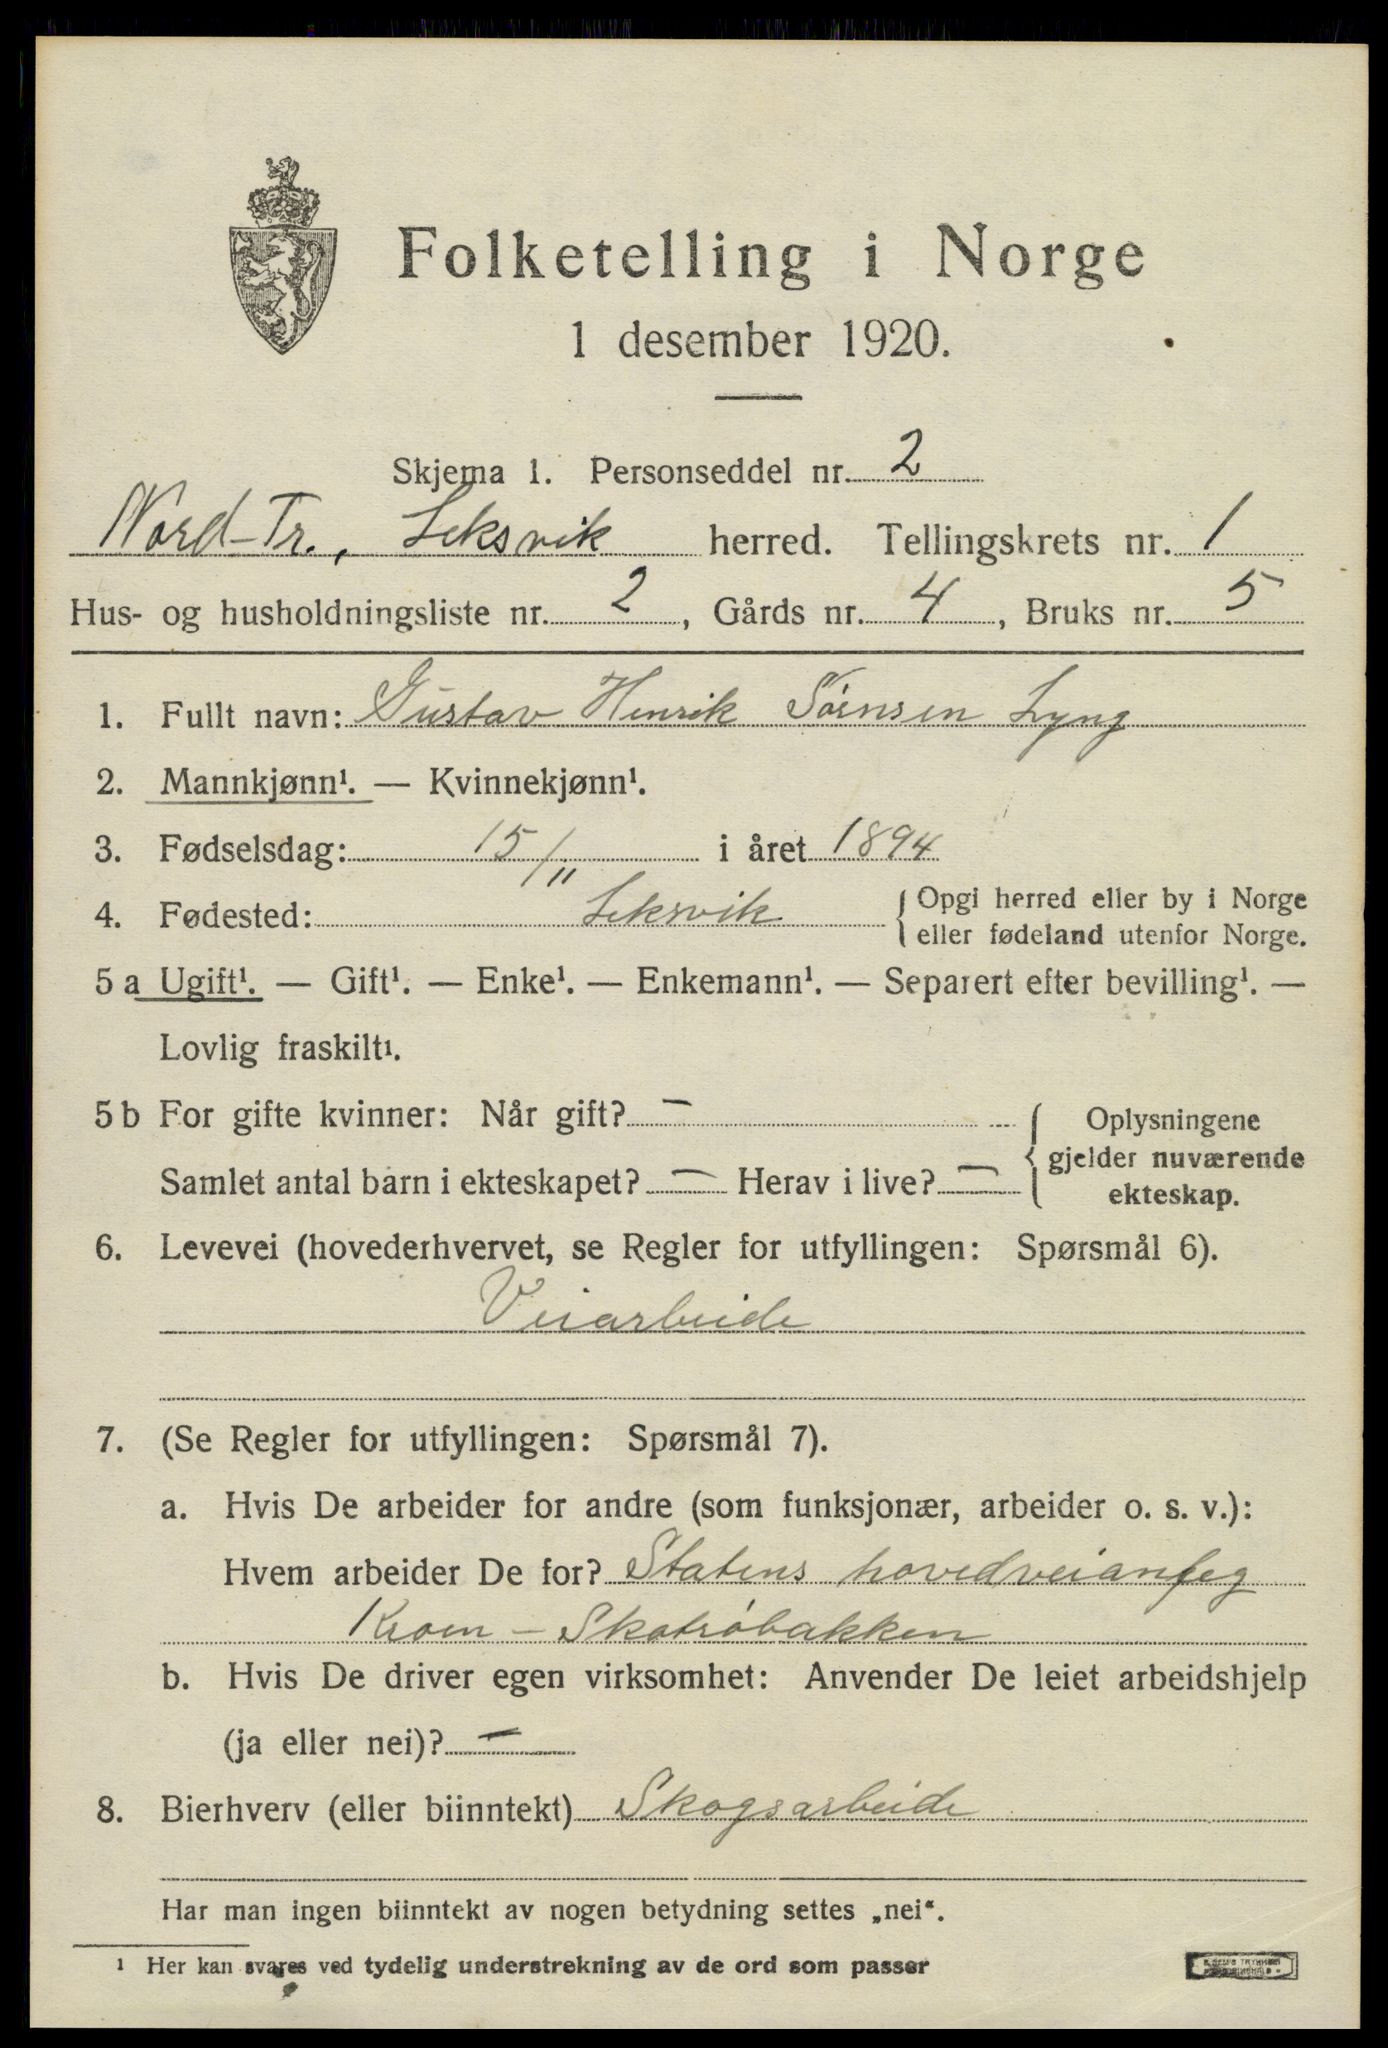 Folketelling i Norge
1 desember 1920.
Skjema 1. Personseddel nr. 2
Nord-Tr., Leksvik herred. Tellingskrets nr. 1
Hus- og husholdningsliste nr. 2, Gårds nr. 4, Bruks nr. 5
1. Fullt navn: Gustav Henrik Sørnsen Lyng
2. Mannkjønn¹. — Kvinnekjønn¹.
3. Fødselsdag: 15/11 i året 1894
4. Fødested: Leksvik { Opgi herred eller by i Norge
eller fødeland utenfor Norge.
5 a Ugift¹. — Gift¹. — Enke¹. — Enkemann¹. — Separert efter bevilling¹. —
Lovlig fraskilt¹.
5 b For gifte kvinner: Når gift? —
Samlet antal barn i ekteskapet? — Herav i live? —
{ Oplysningene
gjelder nuværende
ekteskap.
6. Levevei (hovederhvervet, se Regler for utfyllingen: Spørsmål 6).
Veiarbeide
7. (Se Regler for utfyllingen: Spørsmål 7).
a. Hvis De arbeider for andre (som funksjonær, arbeider o. s. v.):
Hvem arbeider De for? Statens hovedveianleg
Kroen - Skatrøbakken
b. Hvis De driver egen virksomhet: Anvender De leiet arbeidshjelp
(ja eller nei)? —
8. Bierhverv (eller biinntekt) Skogsarbeide
Har man ingen biinntekt av nogen betydning settes „nei“.
¹ Her kan svares ved tydelig understrekning av de ord som passer